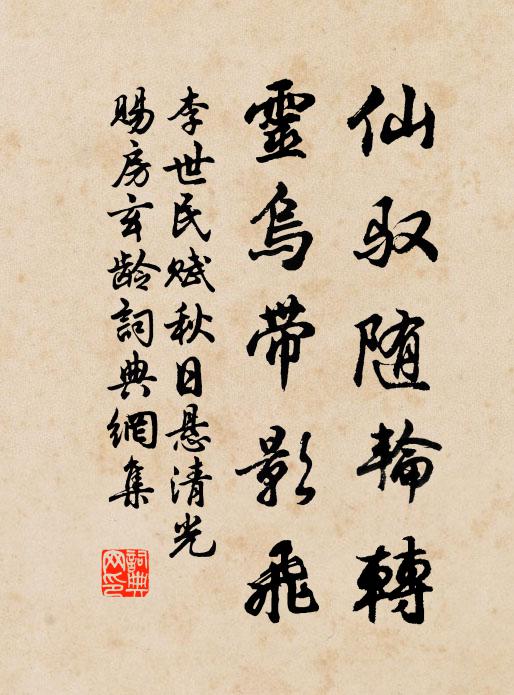 仙驭随輪轉
靈烏帶影飛
李世民赋秋日悬清光
賜房玄龄詞典網集
詞典
网印